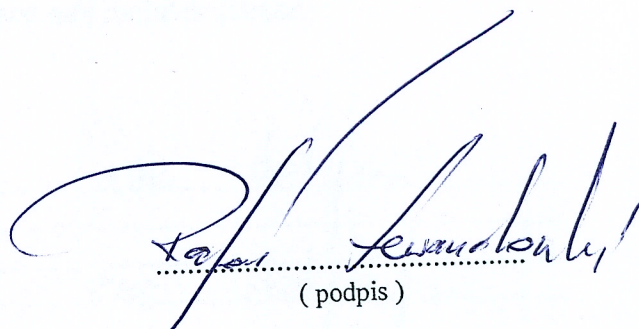 Rafał Lewandowski
( podpis )